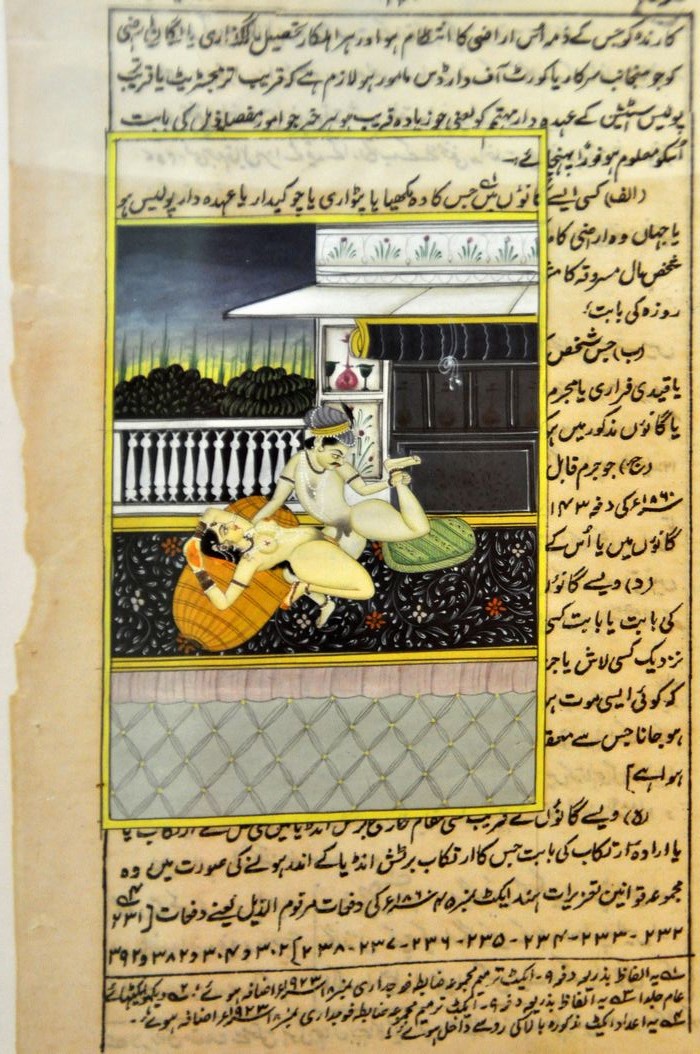 کارندہ کو جس کے ذمہ اُس اراضی کا انتظام ہو اور ہر اہلکار تحصیل مالگذاری یا لگان اراضی
کو جو منجانب سرکار یا کورٹ آف وارڈس مامور ہو لازم ہے کہ قریب تر مجسٹریٹ یا قریب
پولیس اسٹیشن کے عہدہ دار مہتمم کو یعنی جو زیادہ قریب ہو ہر خبر جو امور مفصلہ ذیل کی بابت
اُسکو معلوم ہو فوراً پہنچائے۔
(الف) کسی ایسے گانؤں میں جس کا وہ مکھیا یا پٹواری یا چوکیدار یا عہدہ دار پولیس ہو
یا جہاں وہ اراضی کا
شخص مال مسروقہ کا
روزہ کی بابت؛
(ب) جس شخص
یا قیدی فراری یا مجرم
یا گانؤں مذکور میں
(ج) جو جرم قابل
سنہ ۱۸۶۰ء کی دفعہ ۱۴۳
گانؤں میں یا اُس کے
(د) ویسے گانؤ
کی بابت یا بابت کسی
نزدیک کسی لاش یا
کہ کوئی ایسی موت
ہو جانا جس سے
ہوا ہے]
(ہ) ویسے گانؤں کے قریب کسی مقام
یا ارادہ ارتکاب کی بابت جس کا ارتکاب برٹش انڈیا کے اندر ہونے کی صورت میں وہ
مجموعہ قوانین تعزیرات ہند ایکٹ نمبر ۴۵ سنہ ۱۸۶۰ء کی دفعات مرقوم الذیل یعنے دفعات [۲۳۱
۲۳۲ - ۲۳۳ - ۲۳۴ - ۲۳۵ - ۲۳۶ - ۲۳۷ - ۲۳۸] ۳۰۲ و ۳۰۴ و ۳۸۲ و ۳۹۲
یہ الفاظ بذریعہ دفعہ ۹ - ایکٹ ترمیم مجموعہ ضابطہ فوجداری نمبر سنہ ۱۹۲۳ء اضافہ ہوئے
عام جلد یہ الفاظ بذریعہ دفعہ ۹ - ایکٹ ترمیم مجموعہ ضابطہ فوجداری نمبر سنہ ۱۹۲۳ء اضافہ ہوئے
یہ اعداد ایکٹ مذکورہ بالا کی رو سے داخل ہوئے